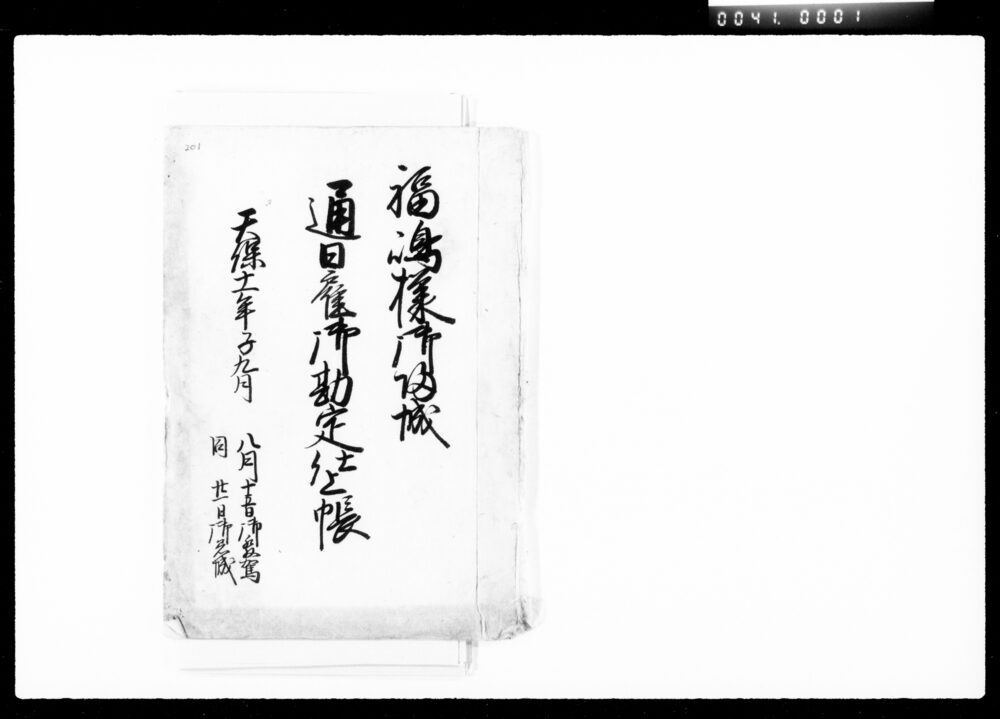 0041. 0001
201
福嶋様御帰城
通日雇御勘定仕上帳
天保十一年子九月
八月十五日御発駕
同 廿一日御着城